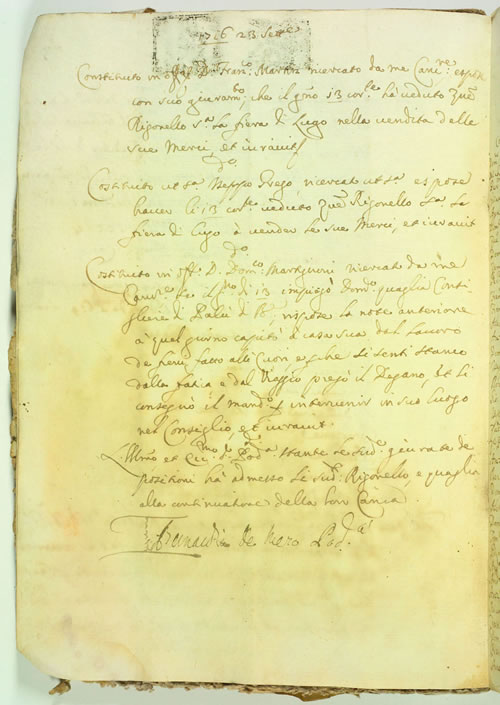 1726 23 Sett.e
Constituto in off.o D. Fran.o Martin ricercato da me Canc.re espose
con suo giuram.to che il g.no 13 cor.te ha veduto Zuê
Rigonello s.a la fiera di Lugo nella vendita delle
sue Merci, et iuravit
do
Costituito ut s.a Beppo Prego ricercat ut s.a espose
haver li 13 cor.te veduto Zuê Rigonello s.a la
fiera di Lugo à vender le sue Merci, et iuravit
do
Costituito in off. D. Dom.o Martignoni ricercat da me
Canc.re se il g.no di 13 impiegò Dom.o quaglia Consi
gliere di rispose la notte anteriore
à qual giorno capitò à casa sua dal Lavoro
de fatto alli Cuori e che si senti stanco
dalla fatia e dal Viaggio pregò il Degano, et li
consegnò il mand.o p intervenir in suo luogo
nel Consiglio, et iuravit.
L'Ill.mo et Ecc.mo S. Pod.a stante le sud.e giurate de
positioni ha admesso li sud.i Rigonello, e quaglia
alla continuatione della loro Carica.
de Mero Pod.a